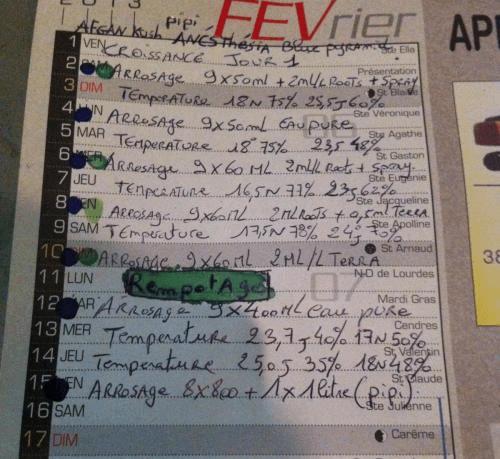 2013
FEVrier
pipi
AFGAN Kush ANESthésia Blue pyramid
1 VEN CROISSANCE JOUR 1 Ste Ella
2 ARROSAGE 9x50ml + 2ml/L ROOTS + SPRAY Présentation
3 DIM TEMPERATURE 18N 75% 25,5J 60% St Blaise
4 LUN ARROSAGE 9x50ml EAU PURE Ste Véronique
5 MAR TEMPERATURE 18° 75% 23,5 48% Ste Agathe
6 MER ARROSAGE 9x60 ML 2ml/L Roots + spray. St Gaston
7 JEU TEMPERATURE 16,5N 77% 23J 62% Ste Eugénie
8 VEN ARROSAGE 9x60ML 2ML ROOTS + 0,5ml TERRA Ste Jacqueline
9 SAM TEMPERATURE 17,5N 78% 24J 70% Ste Apolline
10 DIM ARROSAGE 9x60ML 2ML/L TERRA St Arnaud
11 LUN REMPOTAGE N-D de Lourdes
07
12 MAR ARROSAGE 9x400ML eau pure Mardi Gras
13 MER Temperature 23,7J 40% 17N 50% Cendres
14 JEU Temperature 25,0J 35% 18N 48% St Valentin
15 VEN ARROSAGE 8x800 + 1x1litre (pipi) St Claude
16 SAM Ste Julienne
17 DIM Carême
API
38